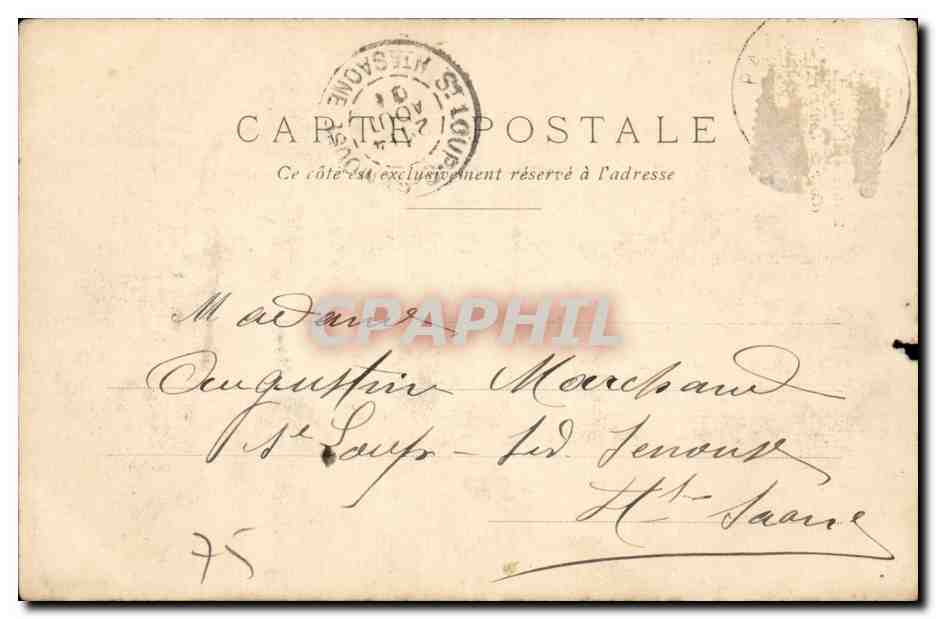 CARTE POSTALE
Ce côté est exclusivement réservé à l'adresse
ST LOUP-S-SEMOUSE HTE SAÔNE
4
AOUT
01
PA
CPAPHIL
Madame
Augustin Marchand
St Loup - s/d. Semouse
Hte Saône
75